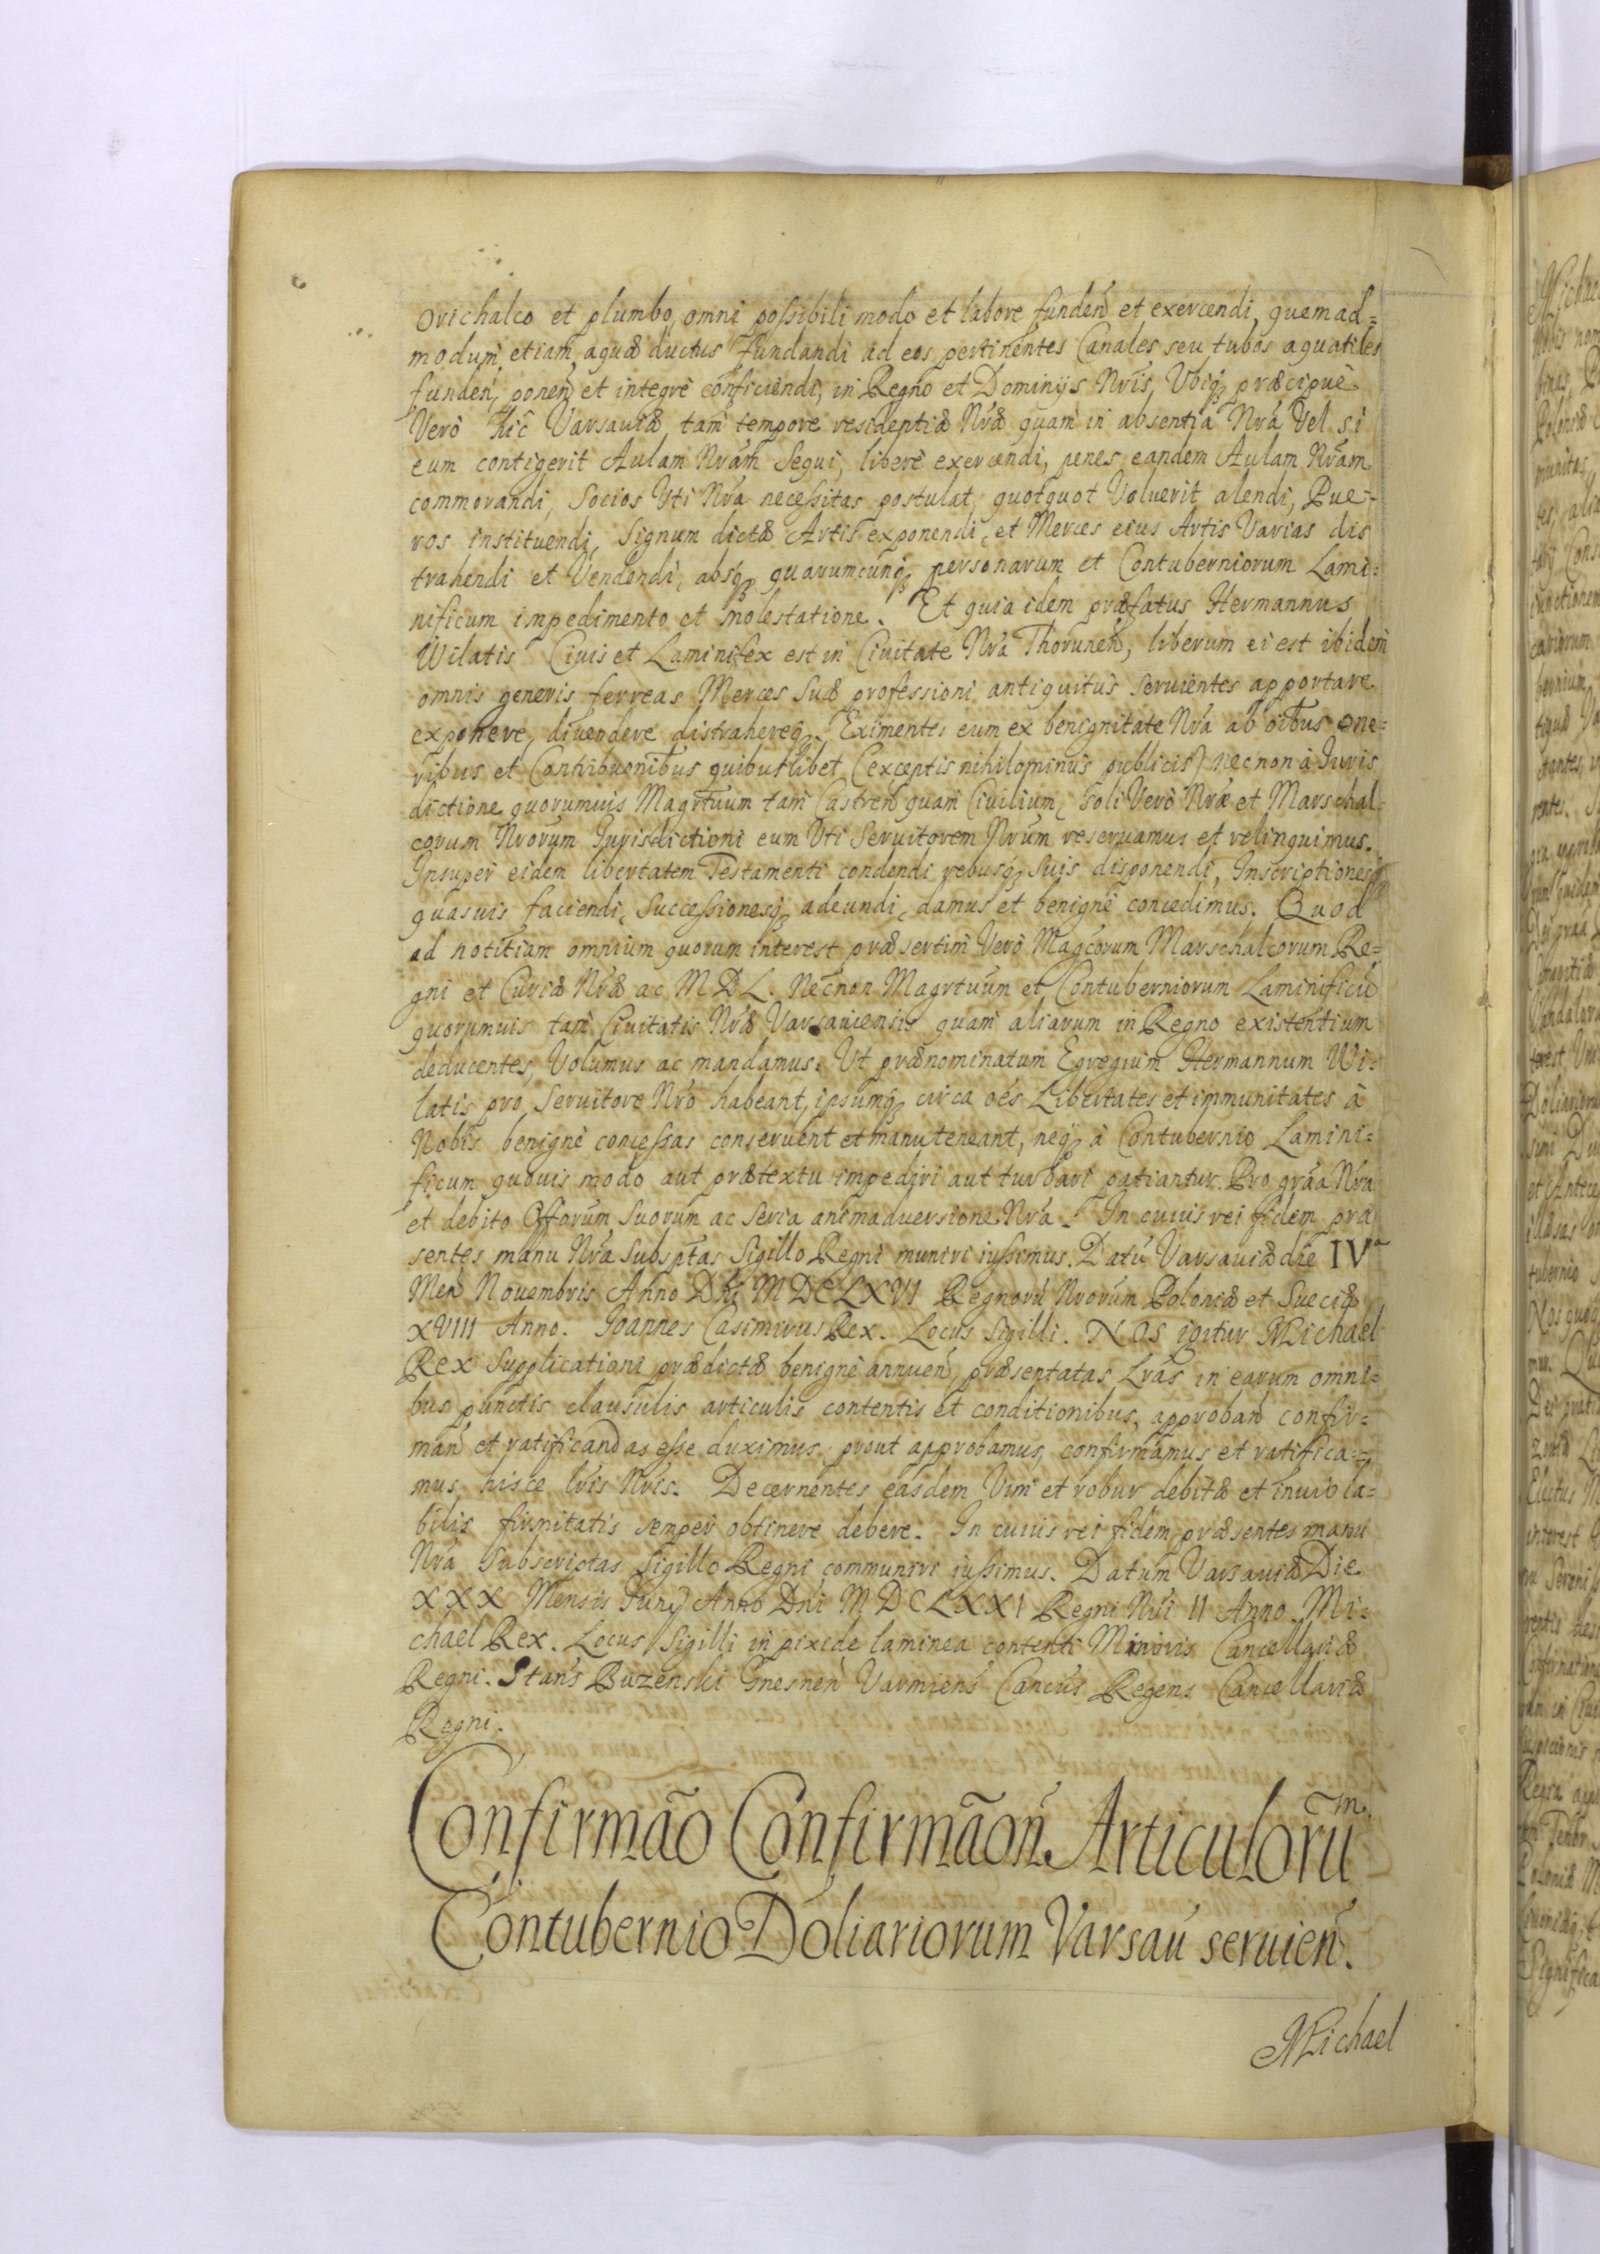 Orichalco et plumbo omni possibili modo et labore funden̄ et exercendi, quemad=
modum etiam aquæ ductus fundandi ad eos pertinentes Canales seu tubos aquatiles
funden̄, ponen̄ et integrè conficiendi, in Regno et Dominijs Nr̄is, Vbiq₃ præcipuè
Verò hîc Varsaviæ tam tempore residentiæ Nr̄æ quam in absentia Nr̄a Vel si
eum contigerit Aulam Nr̄am Sequi, liberè exercendi, penes eandem Aulam Nr̄am
commorandi, Socios Vti Nr̄a necessitas postulat, quotquot Voluerit alendi, Pue-
ros instituendi, Signum dictæ Artis exponendi, et Merces eius Artis Varias dis
trahendi et Vendendi, absq₃ quarumcunq₃ personarum et Contuberniorum Lami=
nificum impedimento et molestatione. Et quia idem præfatus Hermannus
Wilatis Civis et Laminifex est in Civitate Nr̄a Thorunen̄, liberum ei est ibidem
omnis generis ferreas Merces Suæ professioni antiquitùs Servientes apportare
exponere, divendere distrahereq₃. Eximentes eum ex benignitate Nr̄a ab oībus one=
ribus et Contribuenibus quibuslibet (exceptis nihilominùs publicis) necnon à Iuris
dictione quorumvis Magrtuum tam Castren̄ quam Civilium, Soli Verò Nr̄æ et Marschal=
corum Nrorum Iurisdictioni eum Vti Servitorem Nr̄um reservamus et relinquimus.
Insuper eidem libertatem Testamenti condendi rebusq₃ Suis disponendi, Inscriptionesq₃
quasvis faciendi, Successionesq₃ adeundi, damus et benignè concedimus. Quod
ad notitiam omnium quorum interest præsertim Verò Magcorum Marschalcorum Re=
gni et Curiæ Nr̄æ ac M D L. Necnon Magrtuum et Contuberniorum Laminificū
quorumvis tam Civitatis Nr̄æ Varsaviensis quam aliarum in Regno existentium
deducentes, Volumus ac mandamus. Vt prænominatum Egregium Hermannum Wi=
latis pro Servitore Nr̄o habeant, ipsumq₃ circa oēs Libertates et immunitates à
Nobis benignè concessas conservent et manuteneant, neq₃ à Contubernio Lamini=
ficum quovis modo aut prætextu impediri aut turbari patiantur. Pro grāa Nr̄a
et debito Offorum Suorum ac Seria animadversione Nr̄a. In cuius rei fidem præ
sentes manu Nr̄a Subsptas Sigillo Regni muniri iussimus. Datū Varsaviæ die IVᵃ
Men̄ Novembris Anno Dn̄i MDCLXVI Regnorū Nrorum Poloniæ et Sueciæ
XVIII Anno. Joannes Casimirus Rex. Locus Sigilli. NOS igitur Michael
Rex Supplicationi prædictæ benignè annuen̄, præsentatas Lrās in earum omni=
bus punctis clausulis articulis contentis et conditionibus, approban̄ confir=
man̄ et ratificandas esse duximus, prout approbamus, confirmamus et ratifica=
mus hisce lr̄is Nr̄is. Decernentes easdem Vim et robur debitæ et inviola=
bilis firmitatis semper obtinere debere. In cuius rei fidem præsentes manu
Nr̄a Subscriptas Sigillo Regni communiri iussimus. Datum Varsaviæ Die
XXX Mensis Junÿ Anno Dn̄i MDCLXXI Regni Nr̄i II Anno. Mi=
chael Rex. Locus Sigilli in pixide laminea contenti Minoris Cancellariæ
Regni. Stan̄s Buzenski Gnesnen̄ Varmiens̄ Canc̄us Regens Cancellariæ
Regni.
Confirmāo Confirmāon̄ Articulorū m.
Contubernio Doliariorum Varsav̄ servien̄.
Michael